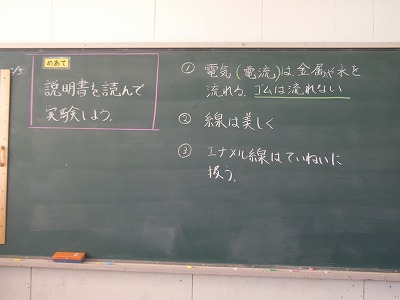 めあて
説明書を読んで
実験しよう。
① 電気(電流)は、金属や水を
流れる。ゴムは流れない
② 線は美しく
③ エナメル線はていねいに
扱う。